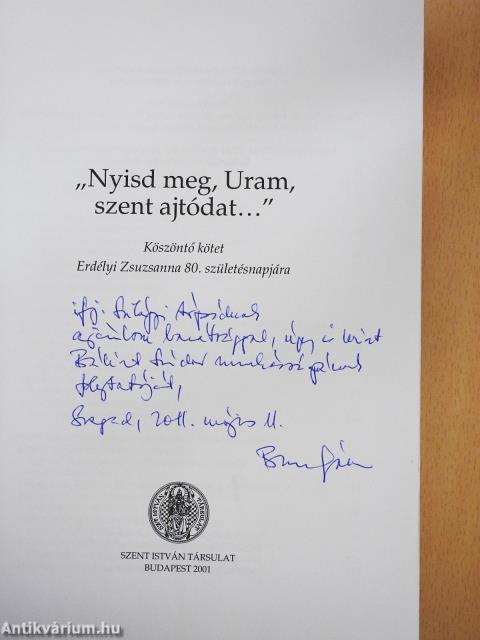 „Nyisd meg, Uram,
szent ajtódat…”
Köszöntő kötet
Erdélyi Zsuzsanna 80. születésnapjára
ifj. Árpádnak
ajánlom barátsággal, úgy is mint
Bálint Sándor munkásságának
folytatóját,
Szeged, 2011. május 11.
SZENT ISTVÁN TÁRSULAT
SZENT ISTVÁN TÁRSULAT
BUDAPEST 2001
Antikvárium.hu